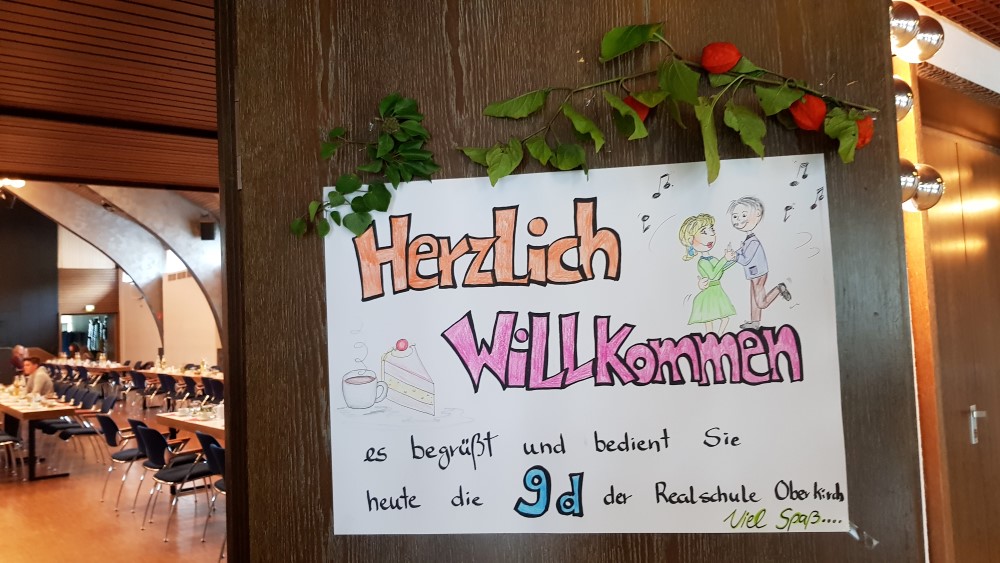 Herzlich
Willkommen
es begrüßt und bedient Sie
heute die 9d der Realschule Oberkirch
Viel Spaß....